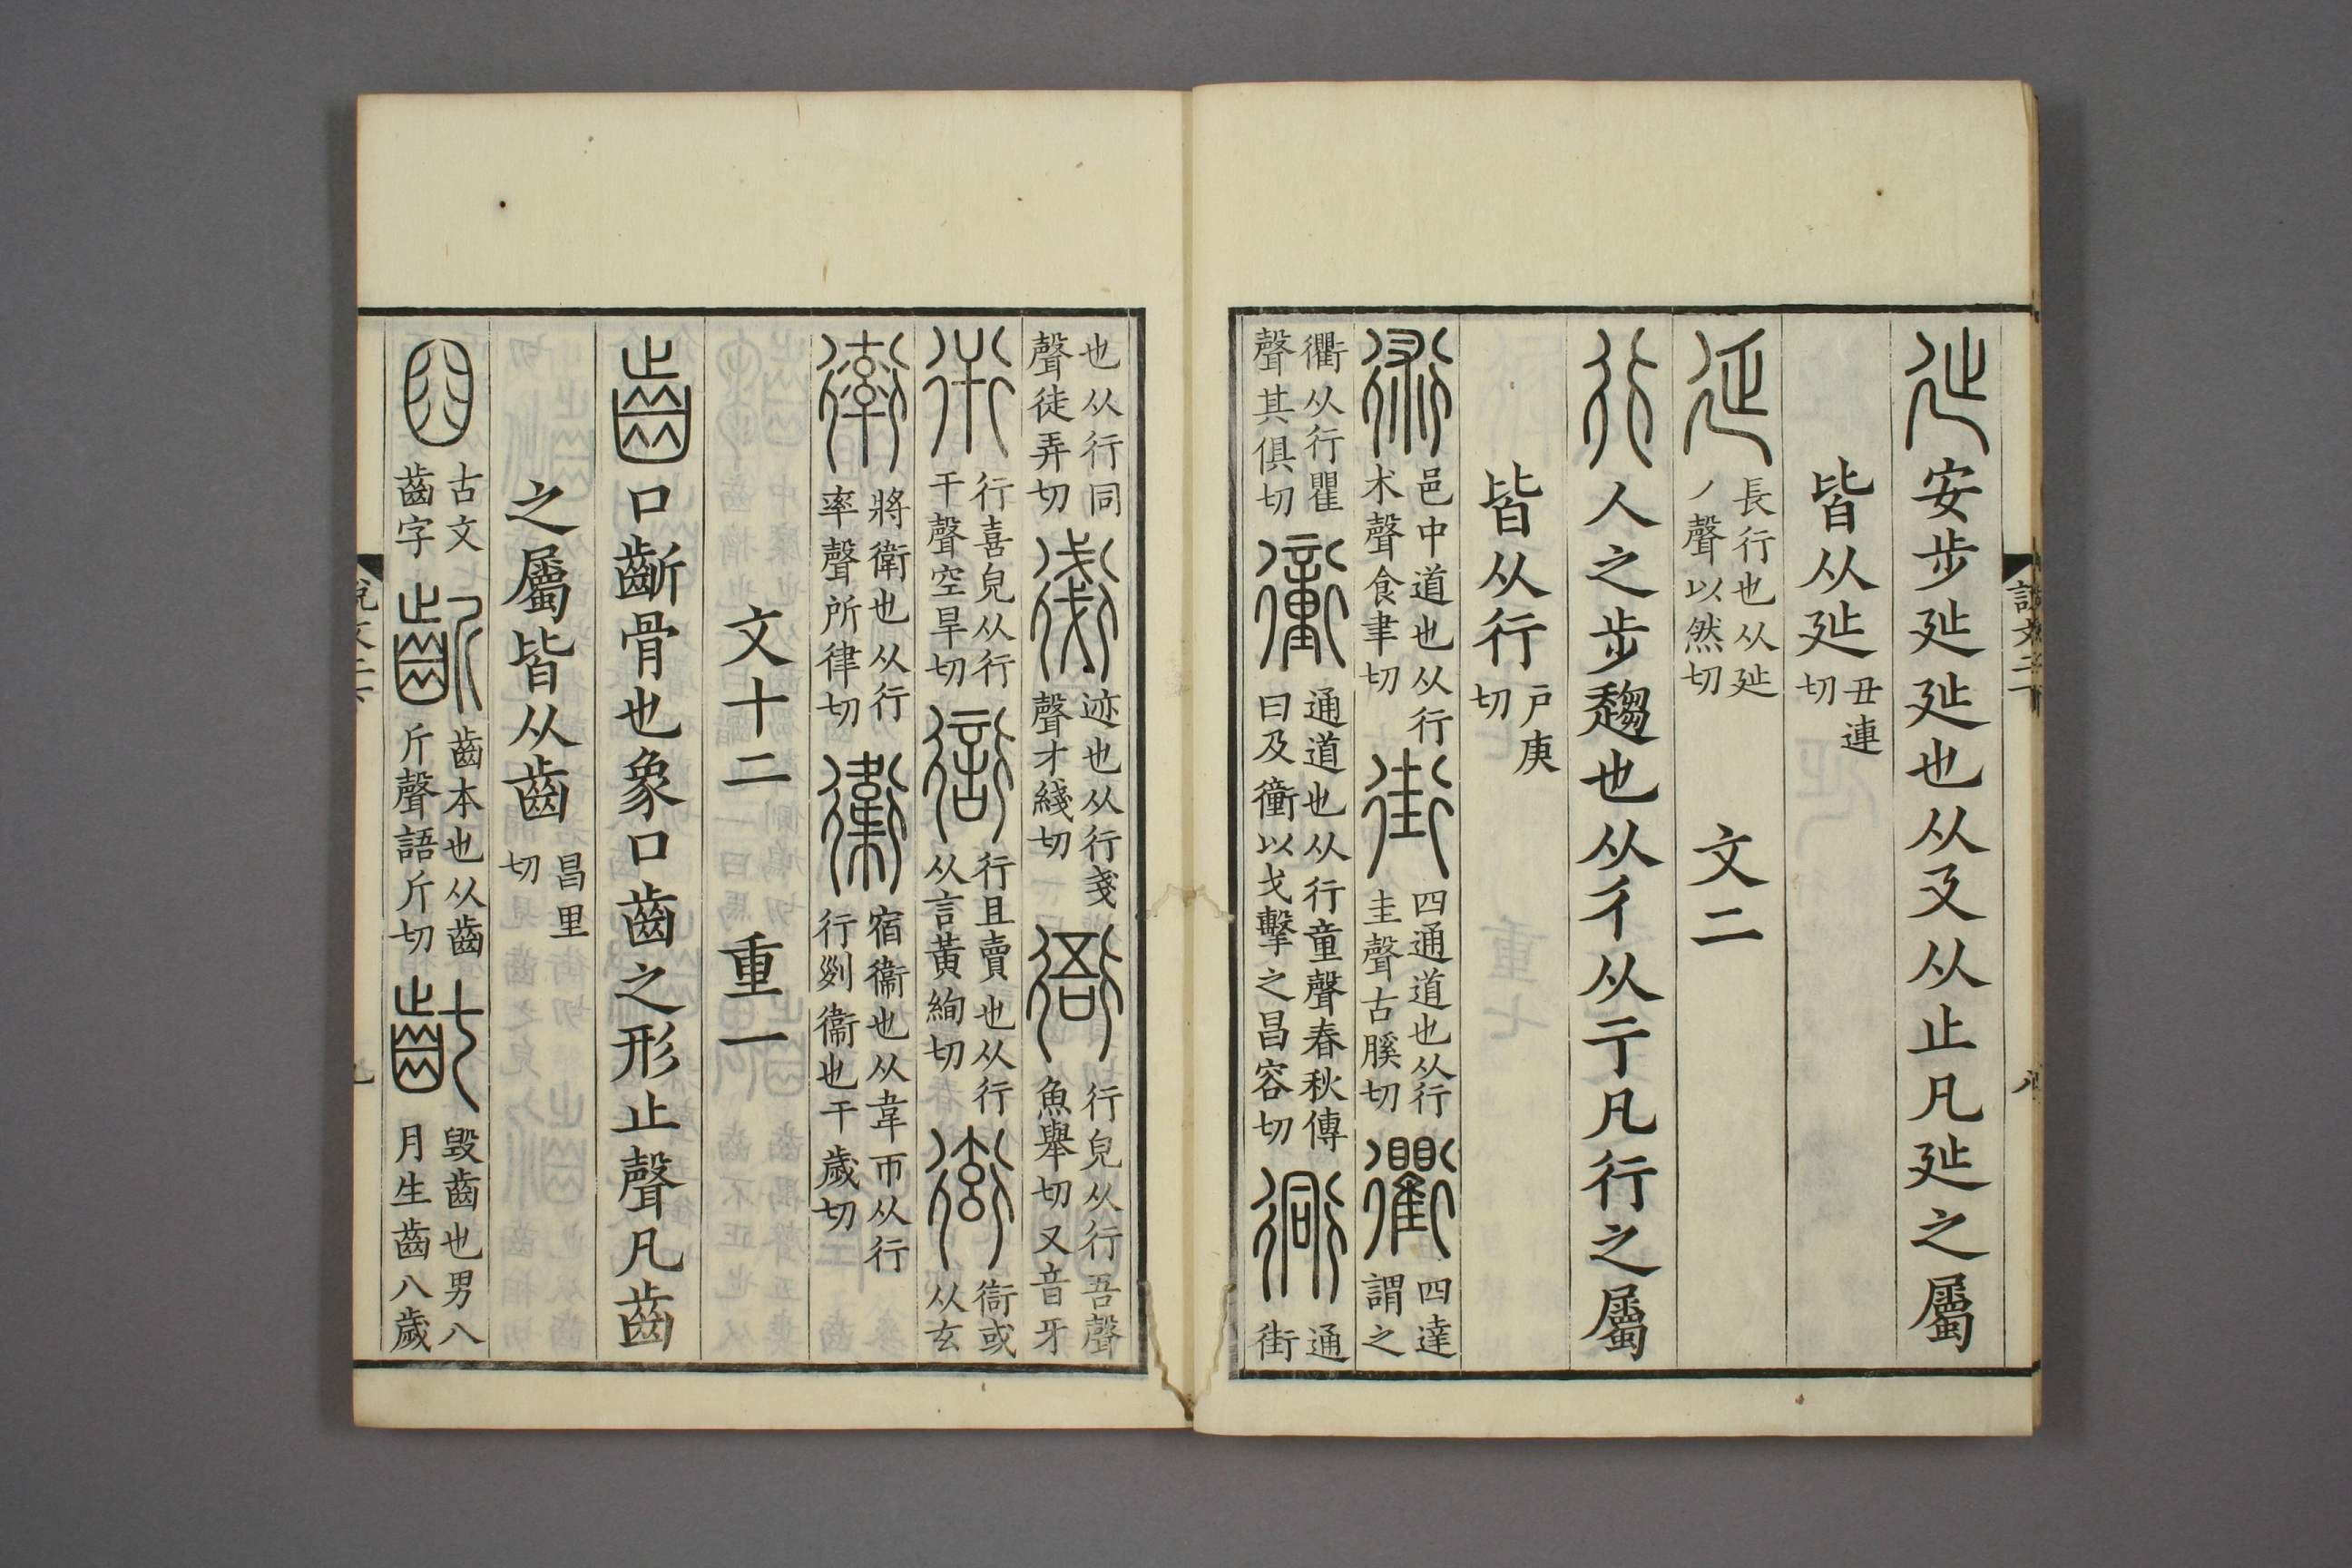 說文二下 八
㢟安步㢟㢟也从廴从止凡㢟之屬
皆从㢟丑連切
延長行也从㢟丿聲以然切 文二
行人之步趨也从彳从亍凡行之屬
皆从行戶庚切
術邑中道也从行术聲食聿切街四通道也从行圭聲古膎切衢四達謂之
衢从行瞿聲其俱切𧘂通道也从行童聲春秋傳曰及𧘂以戈擊之昌容切衕通街
也从行同聲徒弄切𧗸迹也从行戔聲才綫切衙行皃从行吾聲魚舉切又音牙
衎行喜皃从行干聲空旱切𧗳行且賣也从行从言黃絢切衒𧗳或从玄
𧗿將衛也从行率聲所律切衞宿衞也从韋帀从行行列衞也于歲切
文十二 重一
齒口齗骨也象口齒之形止聲凡齒
之屬皆从齒昌里切
𦥒古文齒字齗齒本也从齒斤聲語斤切齔毀齒也男八月生齒八歲
說文二下 九